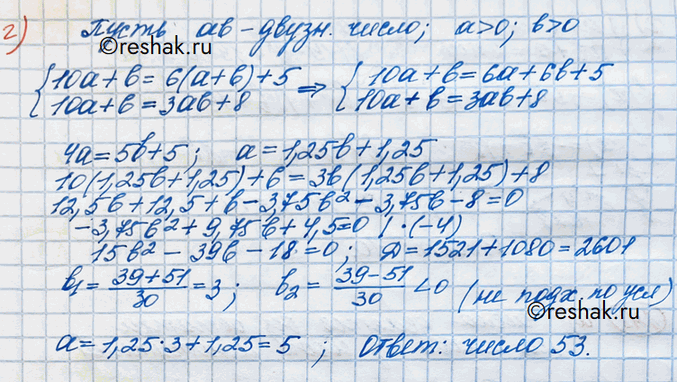 2) Пусть ав - двузн. число; a>0; в>0
©reshak.ru
{10a+в=6(a+в)+5 ⇒ {10a+в=6a+6в+5
{10a+в=3aв+8 {10a+в=3aв+8
4a=5в+5; a=1,25в+1,25
10(1,25в+1,25)+в=3в(1,25в+1,25)+8
12,5в+12,5+в-3,75в²-3,75в-8=0
-3,75в²+9,75в+4,5=0 | ·(-4)
15в²-39в-18=0; Д=1521+1080=2601
в₁=(39+51)/30=3; в₂=(39-51)/30<0 (не подх. по усл)
©reshak.ru
a=1,25·3+1,25=5; Ответ: число 53.